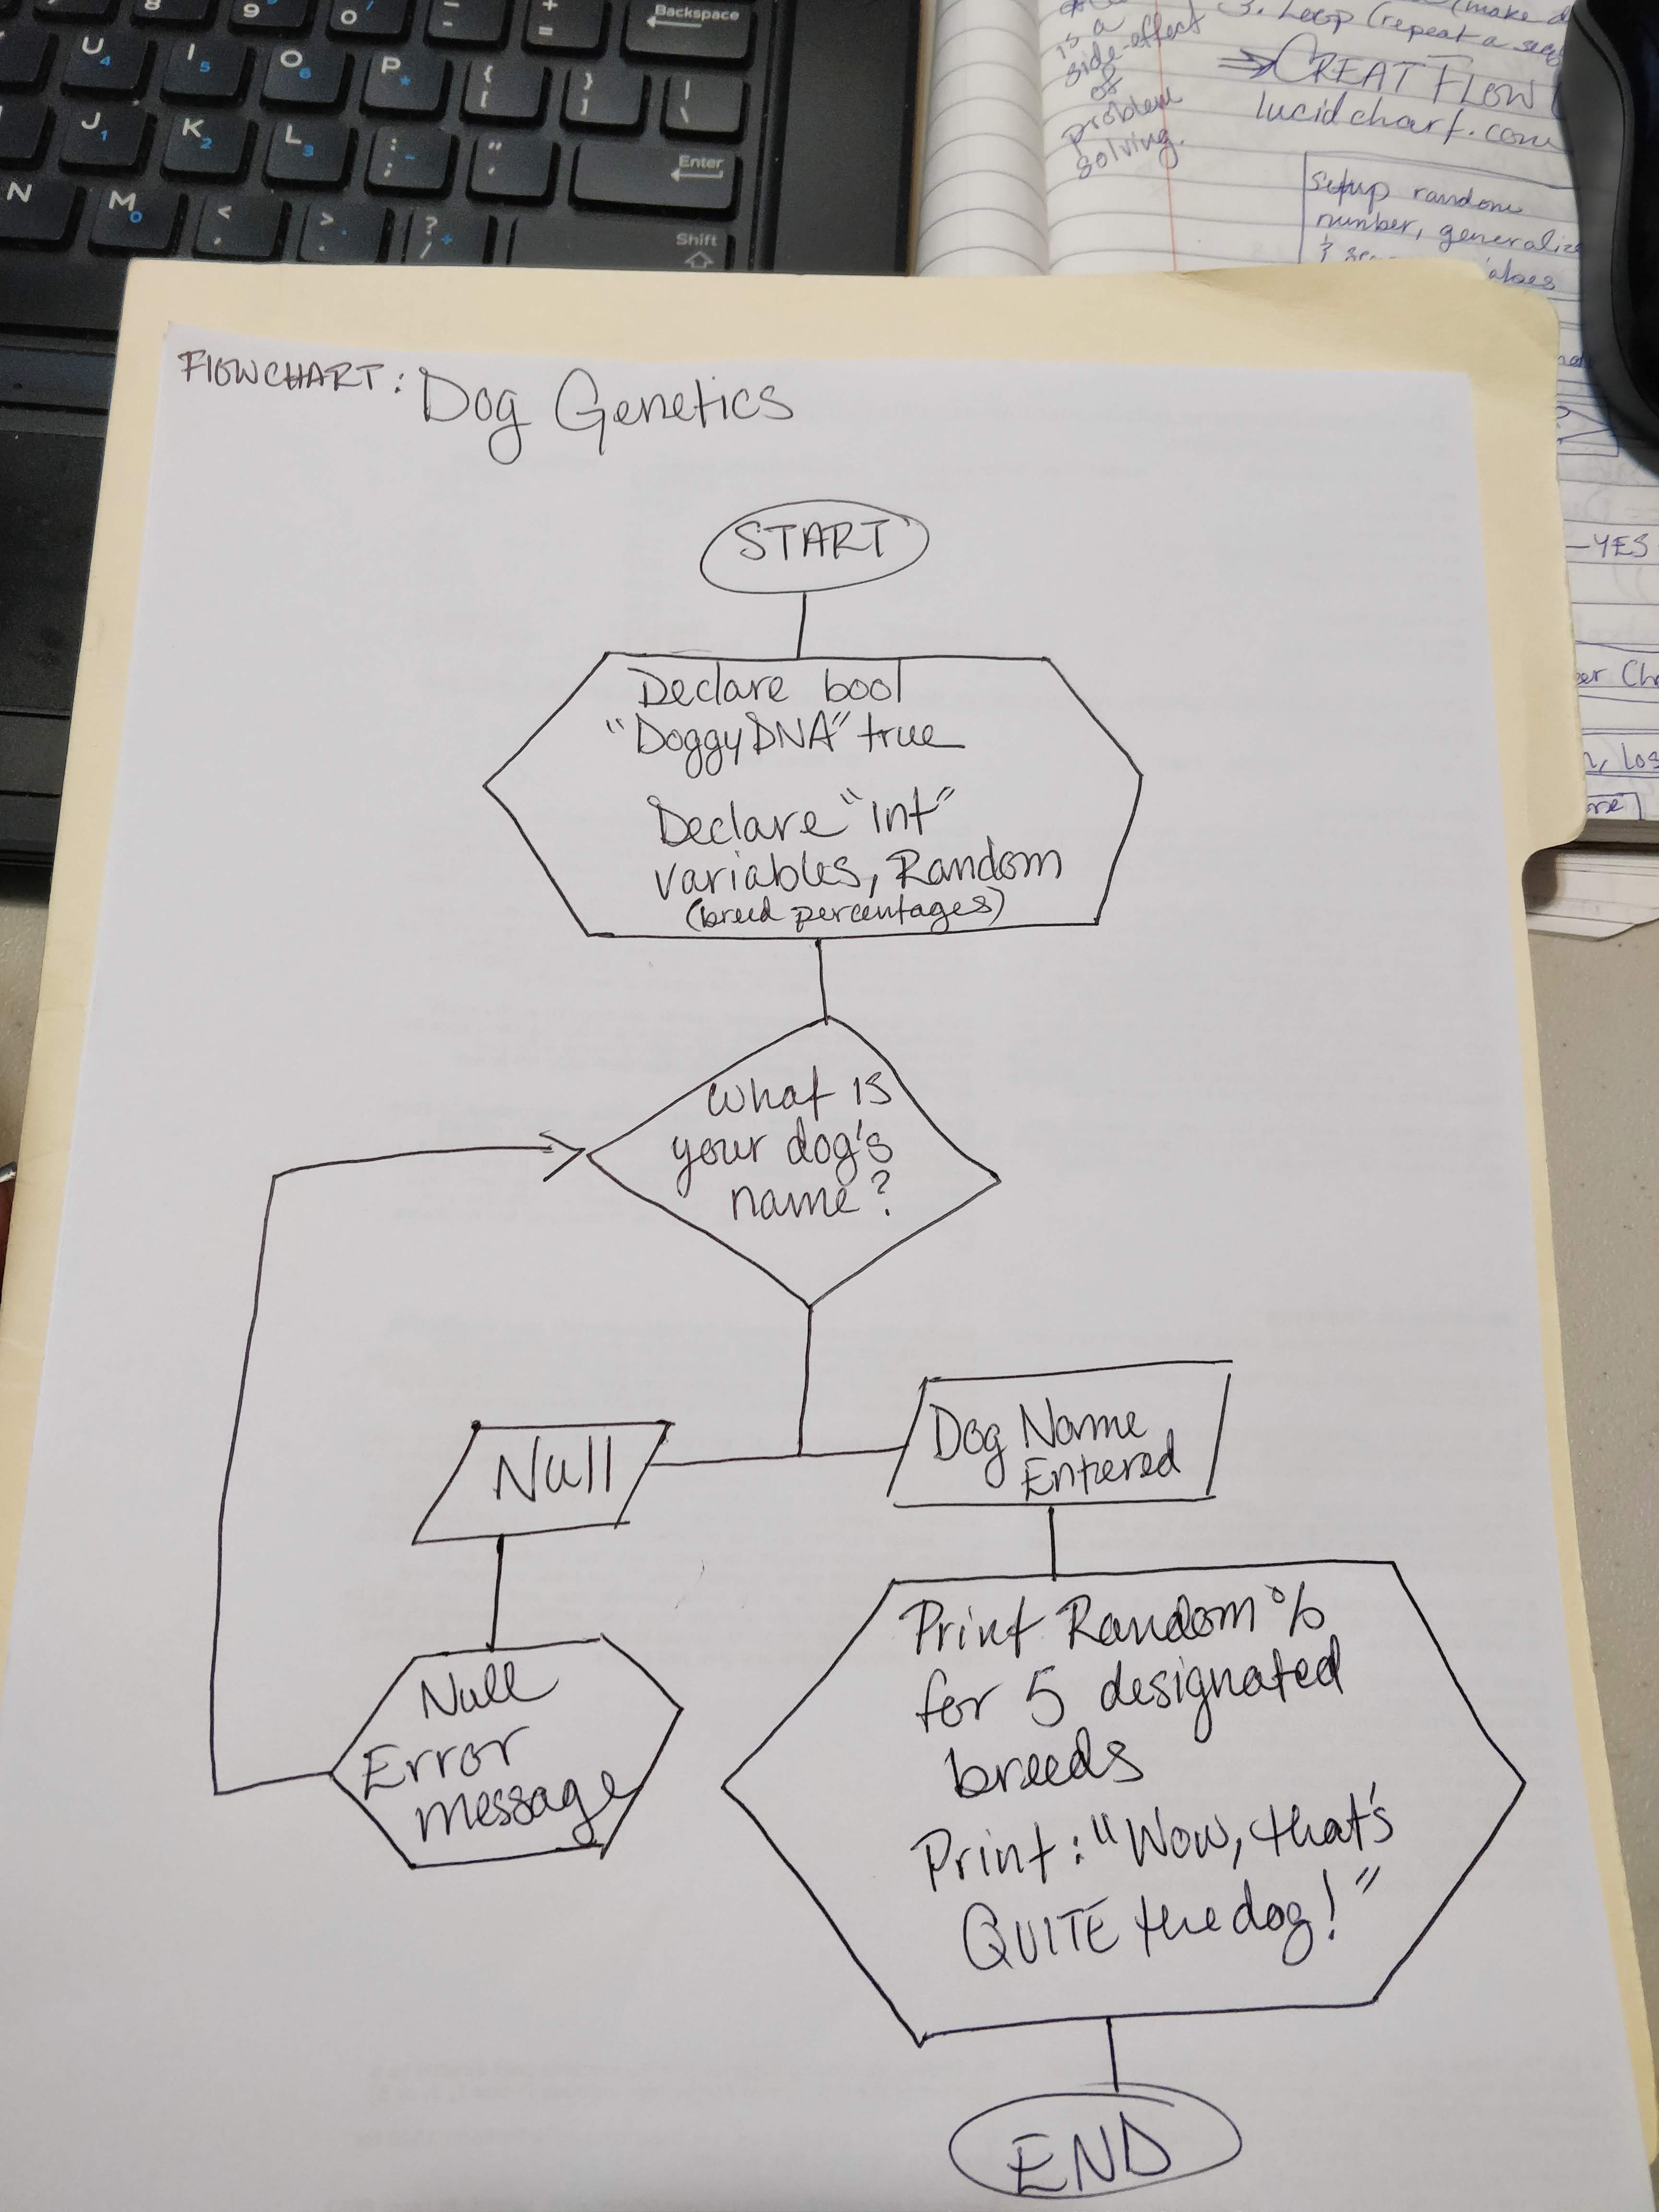 Backspace
U 4
I 5
O 6
P *
{ [
} ]
| \
J 1
K 2
L 3
: ; -
" '
Enter
N
M 0
< ,
> .
? / +
Shift
is a
side-effect
of
problem
solving.
3. Loop (repeat a
⇒ CREAT FLOW
lucidchart.com
setup random
number,
FLOWCHART: Dog Genetics
START
Declare bool
"DoggyDNA" true
Declare "int"
variables, Random
(breed percentages)
What is
your dog's
name?
Null
Dog Name
Entered
Null
Error
message
Print Random %
for 5 designated
breeds
Print: "Wow, that's
QUITE the dog!"
END
—YES